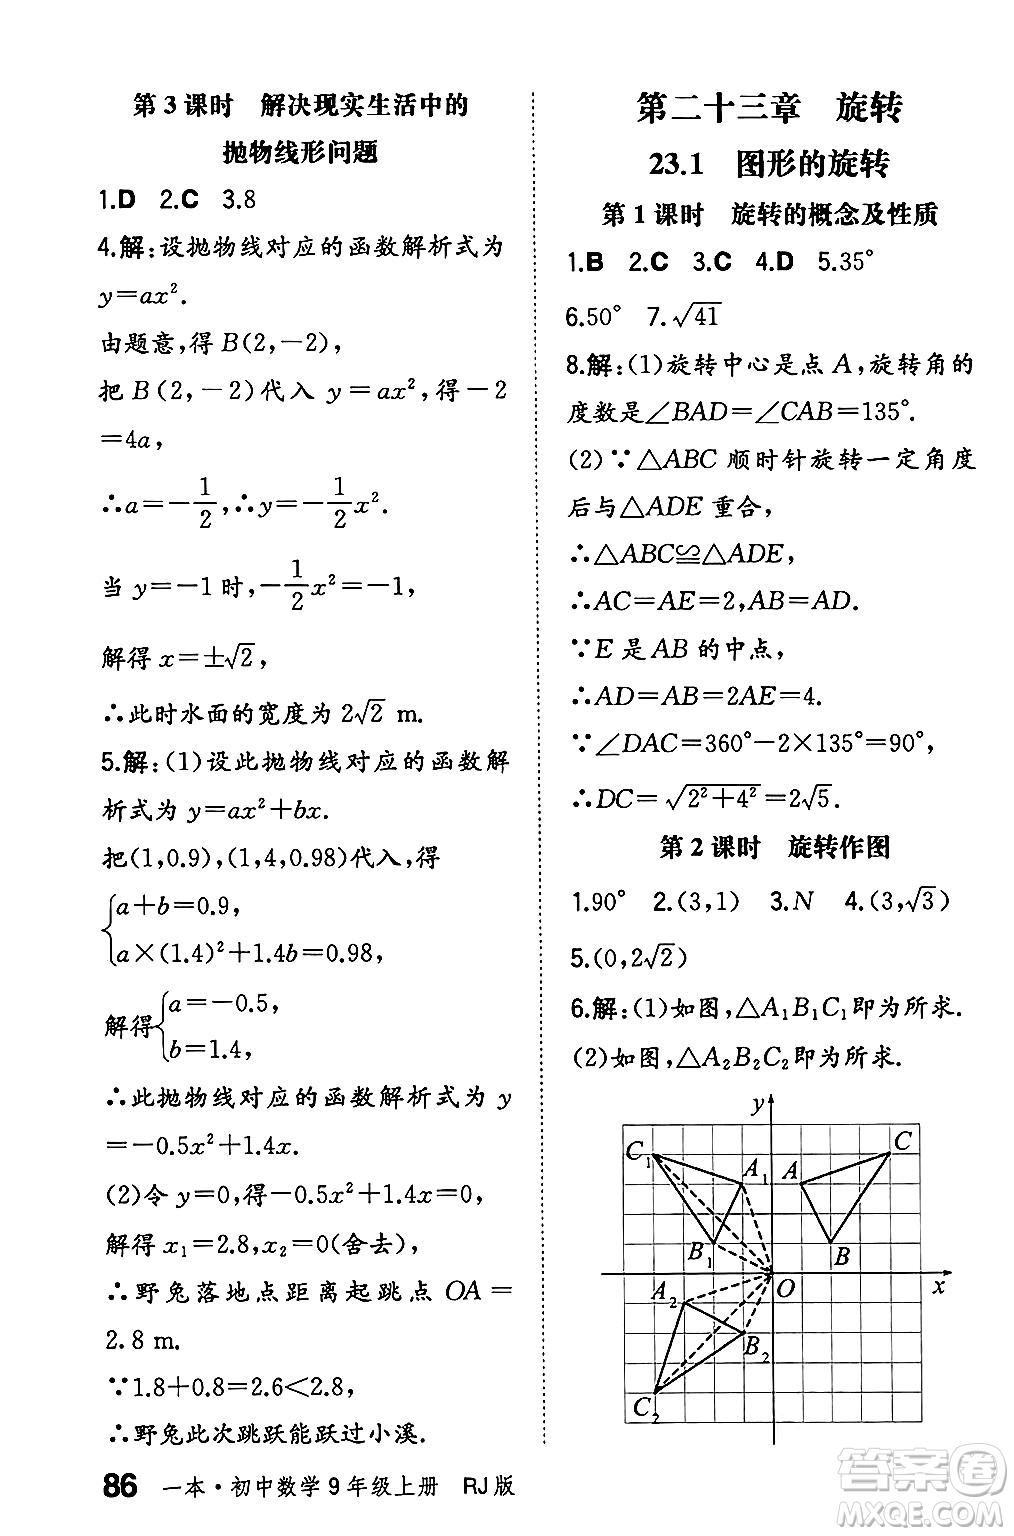 第3课时 解决现实生活中的
抛物线形问题
1.D 2.C 3.8
4.解:设抛物线对应的函数解析式为
y=ax².
由题意,得 B(2,-2),
把 B(2,-2)代入 y=ax²,得-2
=4a,
∴a=-1/2,∴y=-1/2x².
当 y=-1 时,-1/2x²=-1,
解得 x=±√2,
∴此时水面的宽度为 2√2 m.
5.解:(1)设此抛物线对应的函数解
析式为 y=ax²+bx.
把(1,0.9),(1,4,0.98)代入,得
{a+b=0.9,
a×(1.4)²+1.4b=0.98,
解得{a=-0.5,
b=1.4,
∴此抛物线对应的函数解析式为 y
=-0.5x²+1.4x.
(2)令 y=0,得-0.5x²+1.4x=0,
解得 x₁=2.8,x₂=0(舍去),
∴野兔落地点距离起跳点 OA=
2.8 m.
∵1.8+0.8=2.6<2.8,
∴野兔此次跳跃能跃过小溪.
第二十三章 旋转
23.1 图形的旋转
第1课时 旋转的概念及性质
1.B 2.C 3.C 4.D 5.35°
6.50° 7.√41
8.解:(1)旋转中心是点 A,旋转角的
度数是∠BAD=∠CAB=135°.
(2)∵△ABC 顺时针旋转一定角度
后与△ADE 重合,
∴△ABC≌△ADE,
∴AC=AE=2,AB=AD.
∵E 是 AB 的中点,
∴AD=AB=2AE=4.
∵∠DAC=360°-2×135°=90°,
∴DC=√(2²+4²)=2√5.
第2课时 旋转作图
1.90° 2.(3,1) 3.N 4.(3,√3)
5.(0,2√2)
6.解:(1)如图,△A₁B₁C₁即为所求.
(2)如图,△A₂B₂C₂即为所求.
y
C₁ A₁ A C
B₁ B
A₂ O x
B₂
C₂
86 一本·初中数学9年级上册 RJ版
答案圈
MXQE.COM